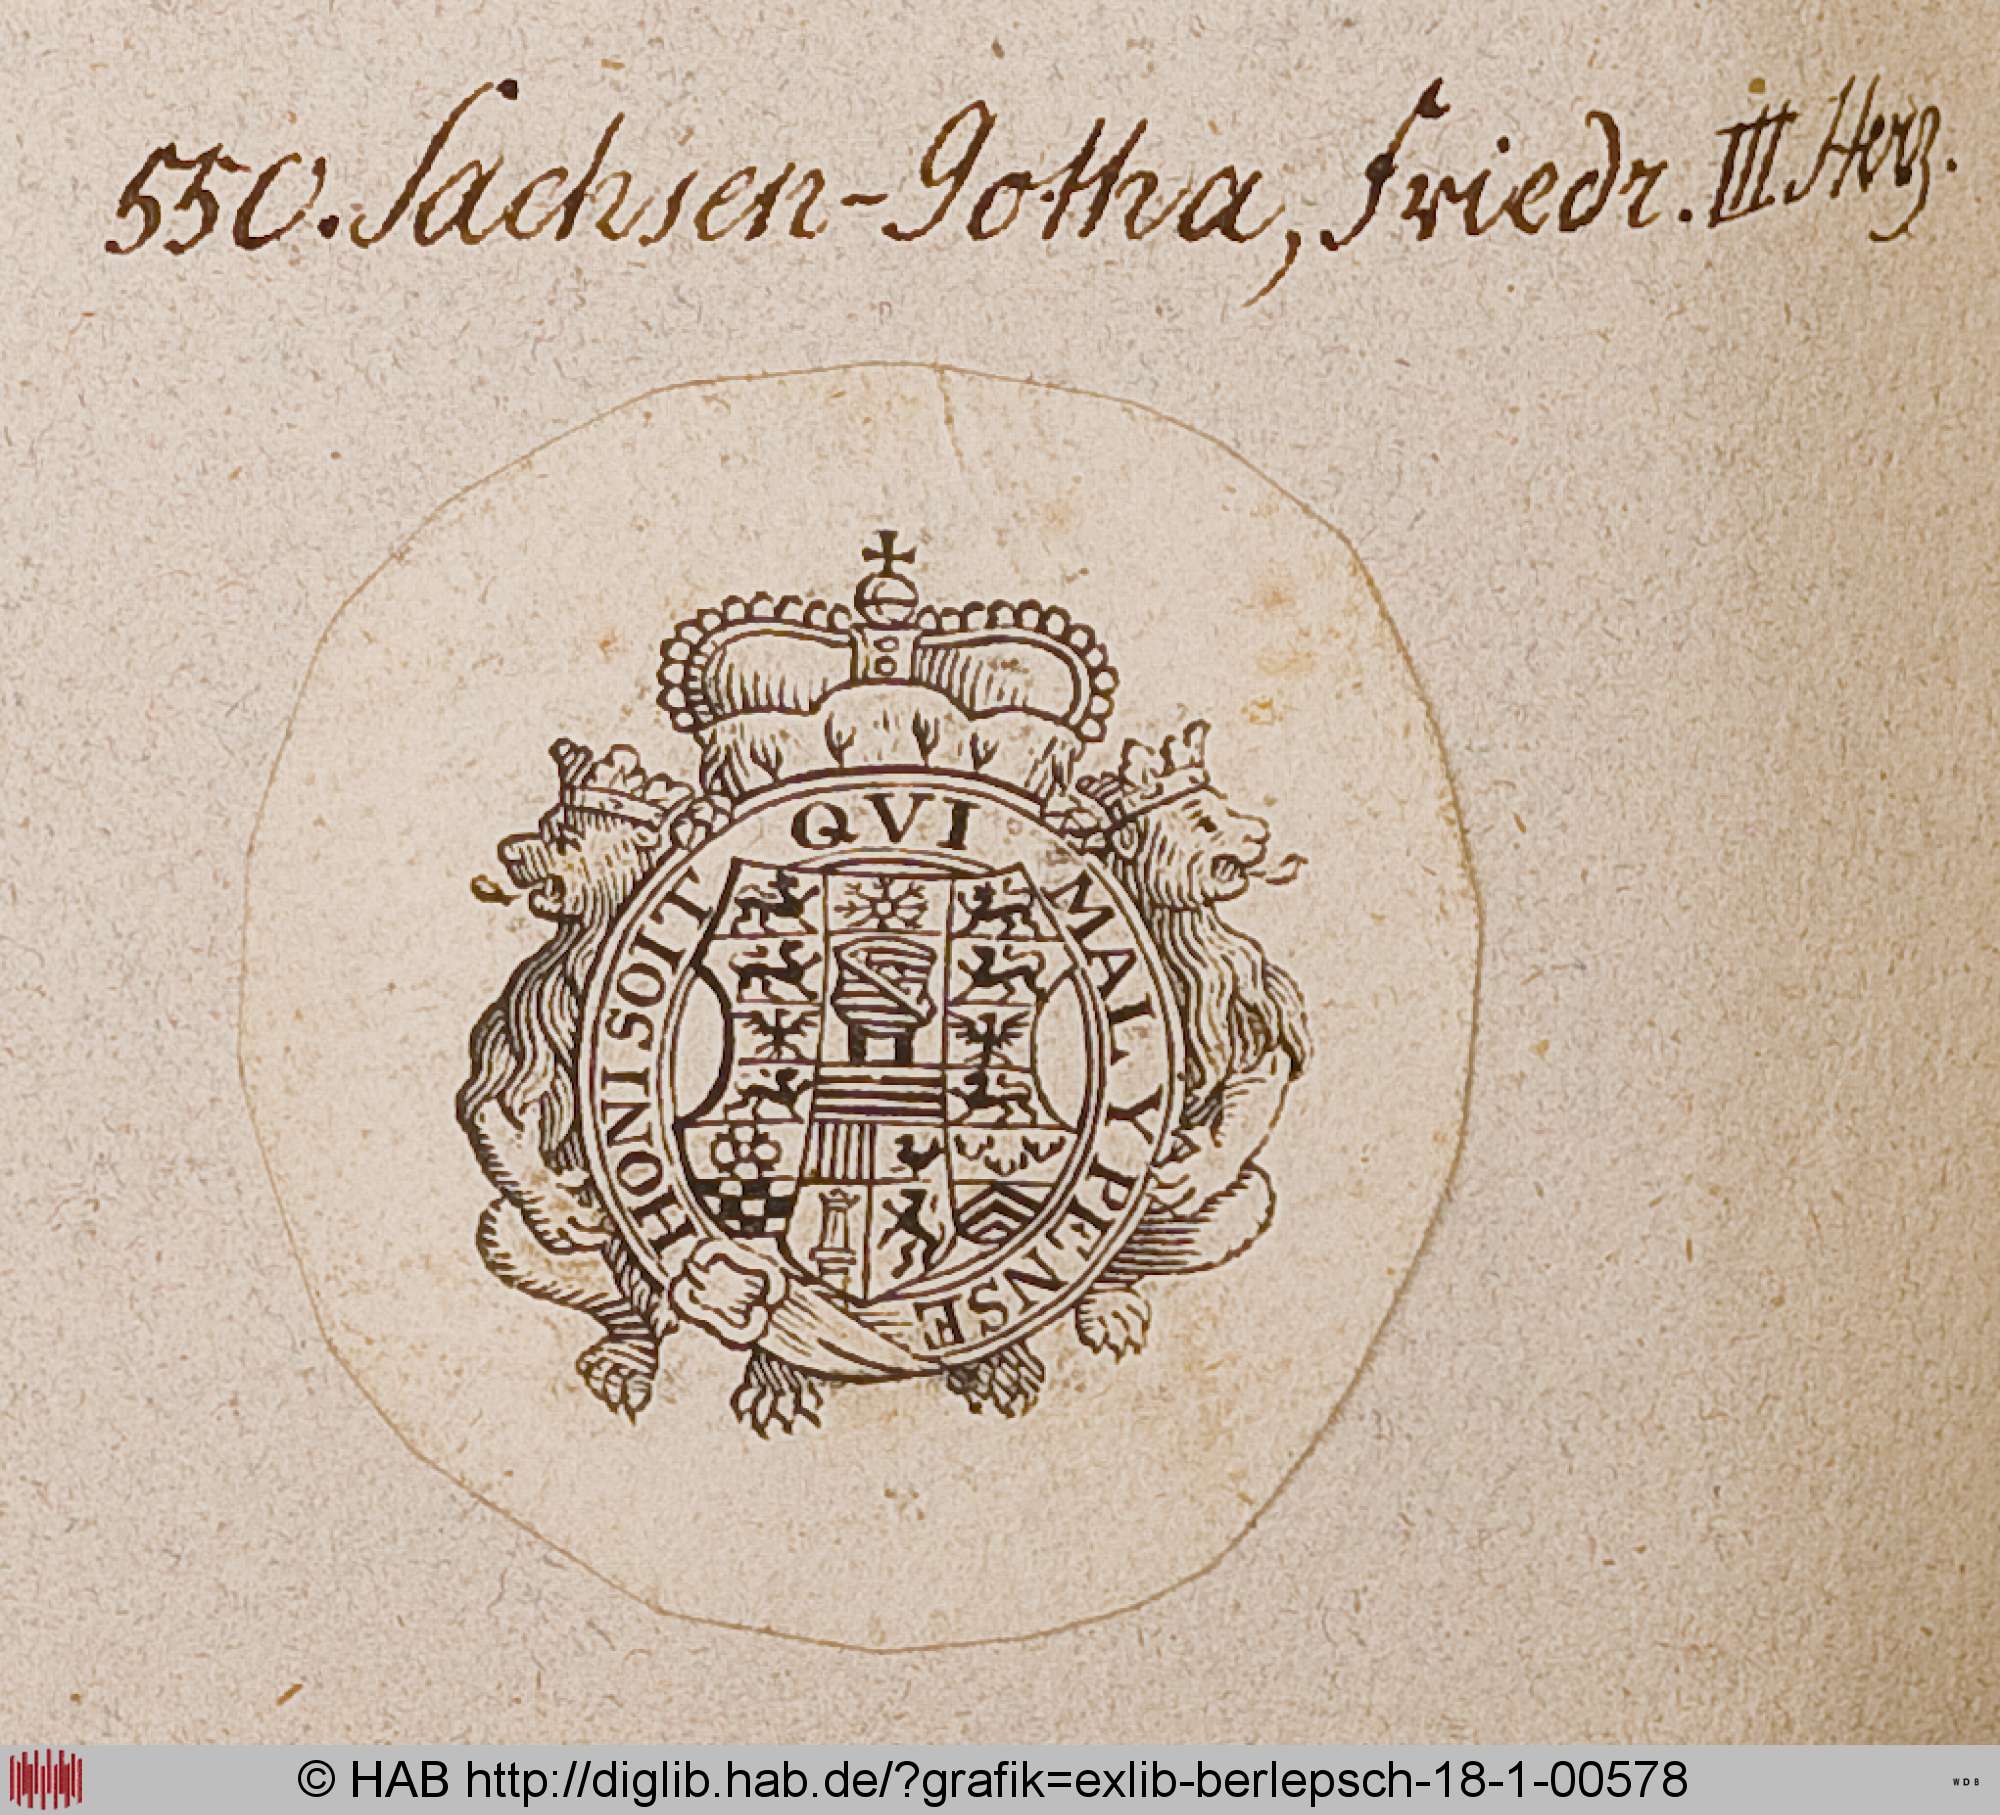 550. Sachsen-Gotha, Friedr. III Herz.
HONI SOIT QVI MAL Y PENSE
© HAB http://diglib.hab.de/?grafik=exlib-berlepsch-18-1-00578
WDB